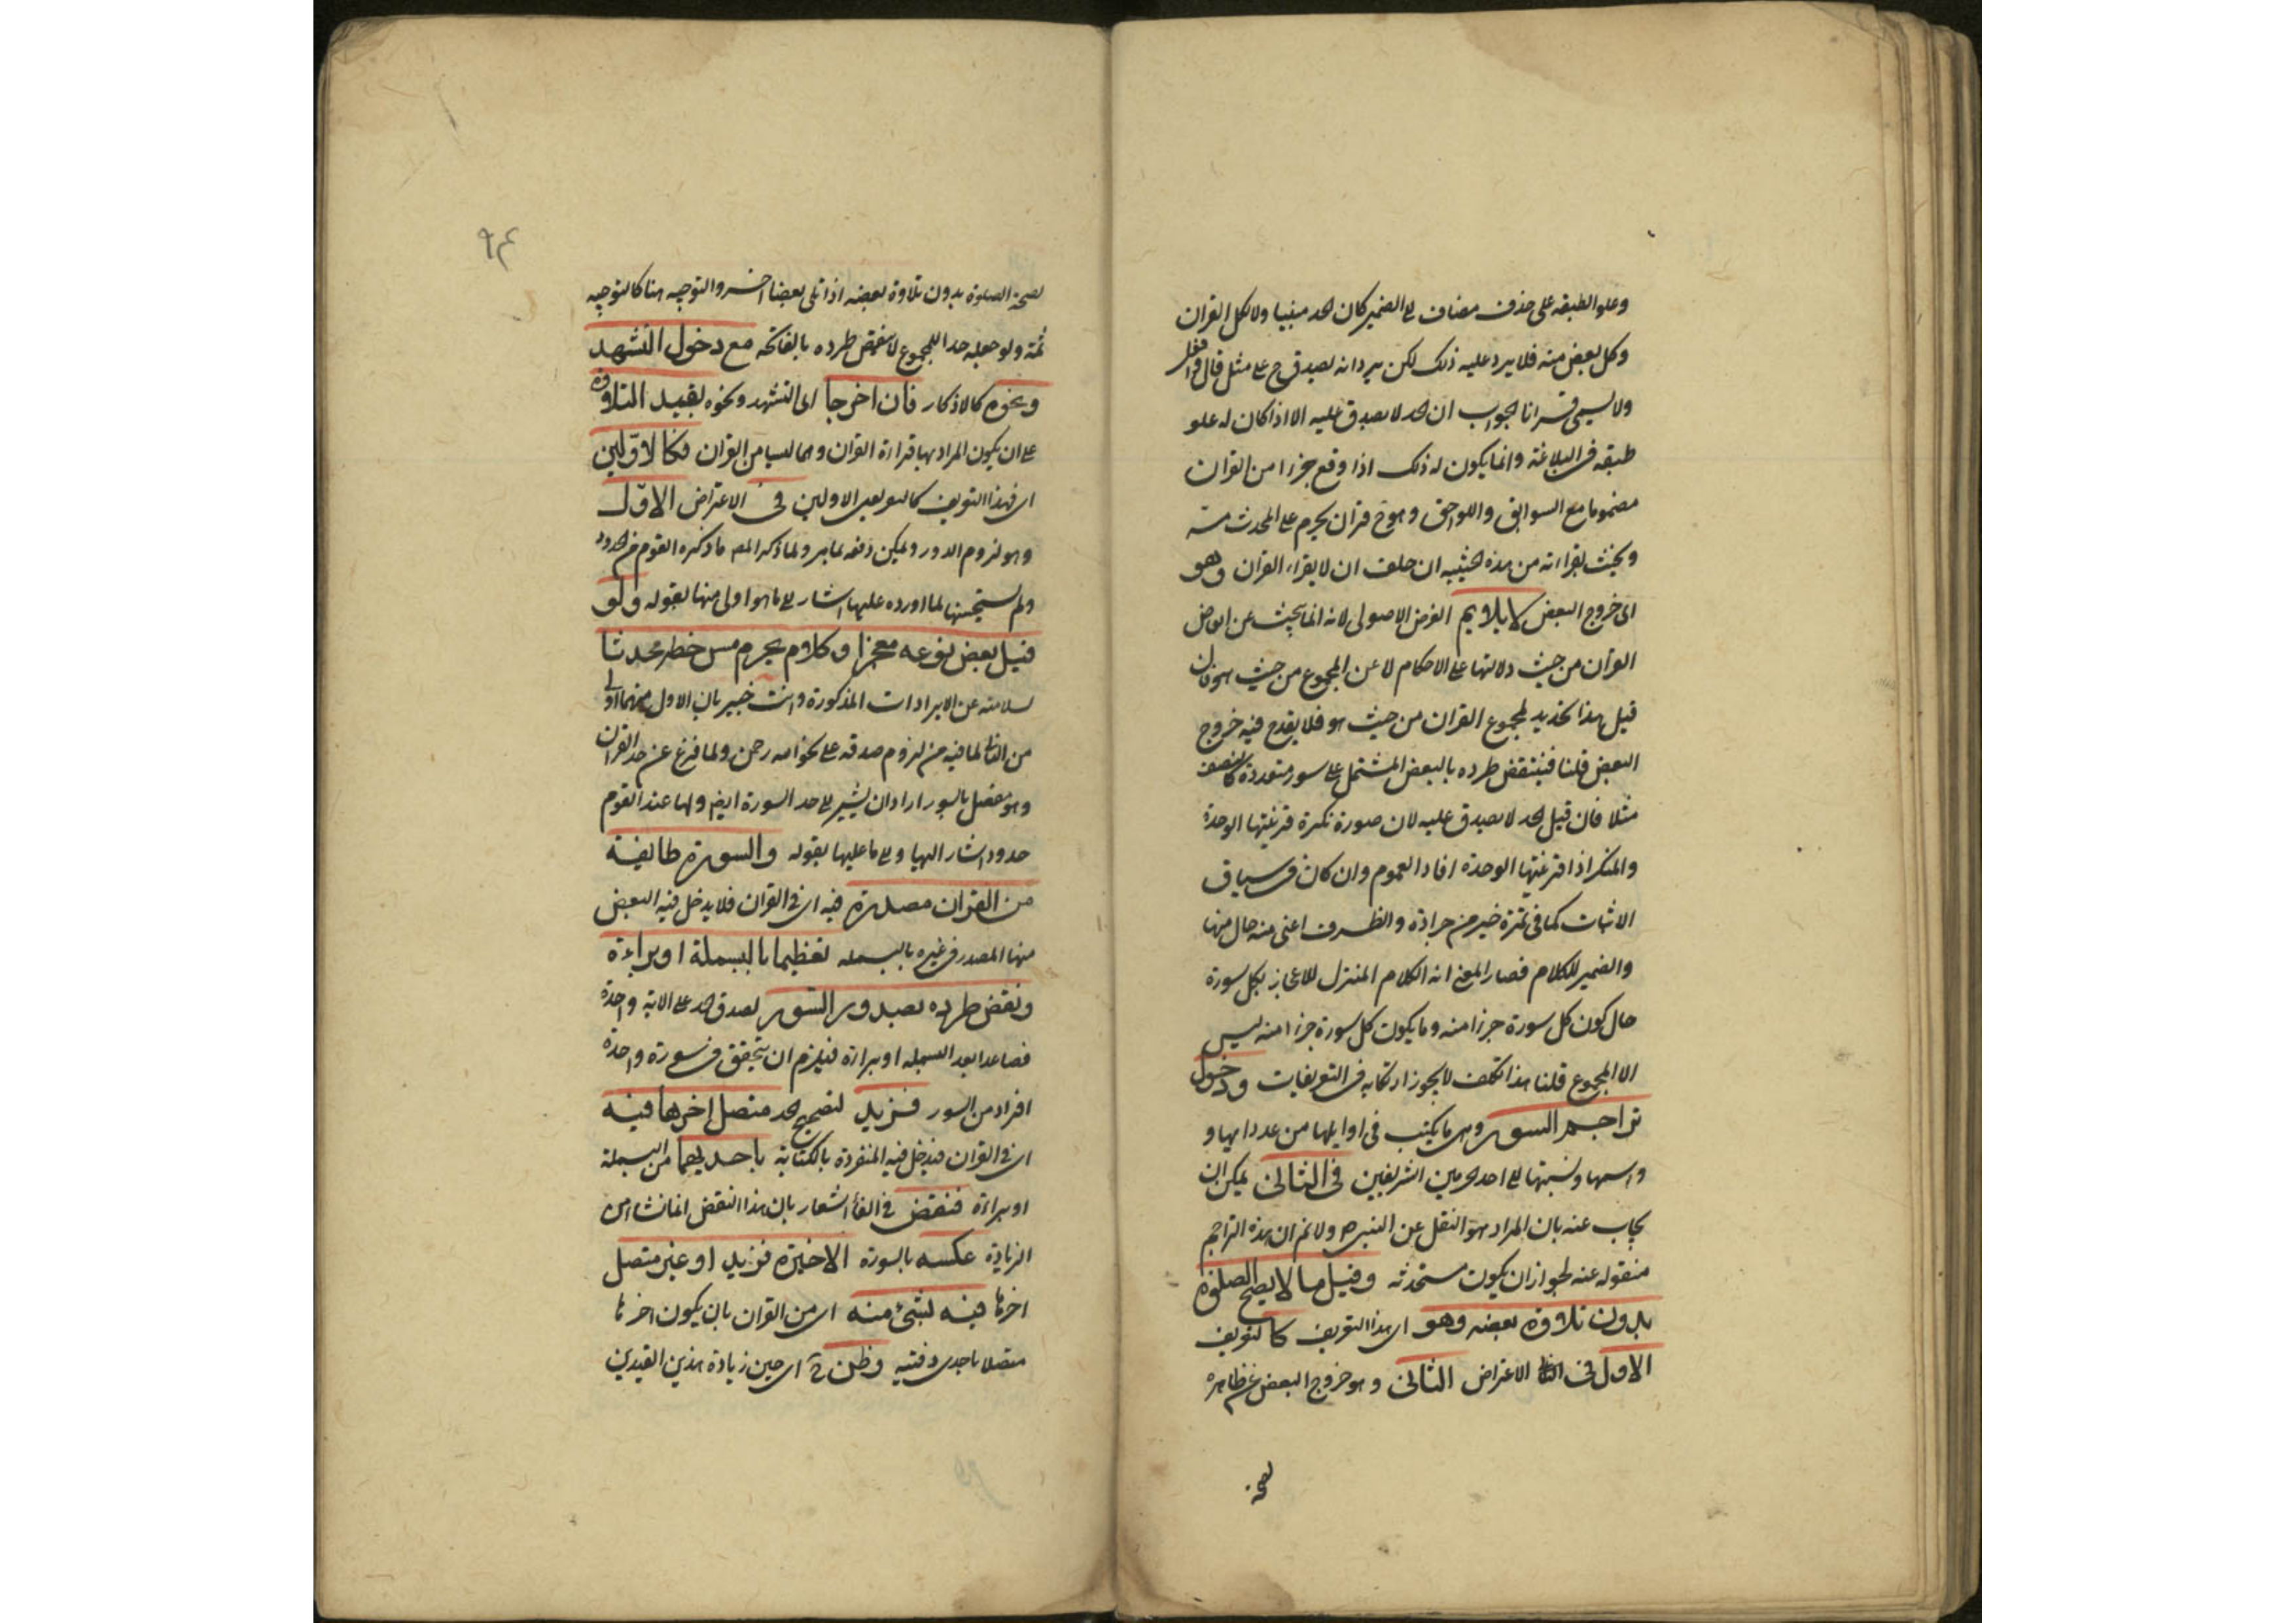 وعلو الطبقه على حذف مضاف الى الضمير كان الحد مبنيا ولا لكل القران
وكل بعض منه فلا يرد عليه ذلك لكن يرد انه يصدق ح على مثل قال
ولا يسمى قرانا الجواب ان الحد لا يصدق عليه الا اذا كان له علو
طبقه فى البلاغة وانما يكون له ذلك اذا وقع جزءا من القران
مضموما مع السوابق واللواحق وهو ح قران يحرم على المحدث مسه
ويحنث بقراءته من هذه الحيثيه ان حلف ان لا يقراء القران وهو
اى خروج البعض لا يلايم الغرض الاصولى لانه انما يبحث عن ابعاض
القران من حيث دلالتها على الاحكام لا عن المجموع من حيث هو فان
قيل هذا تحديد لمجموع القران من حيث هو فلا يقدح فيه خروج
البعض قلنا فينتقض طرده بالبعض المشتمل على سور متعددة كالنصف
مثلا فان قيل الحد لا يصدق عليه لان صورة نكرة قرنتها الوحدة
والمنكر اذا قرنتها الوحدة افاد العموم وان كان فى سياق
الاثبات كما فى تمرة خير من جرادة والظرف اعنى منه حال منها
والضمير للكلام فصار المعنى انه الكلام المنزل للاعجاز بكل سورة
حال كون كل سورة جزءا منه وما يكون كل سورة جزءا منه ليس
الا المجموع قلنا هذا تكلف لا يجوز ارتكابه فى التعريفات ودخول
تراجم السور وهى ما يكتب فى اوايلها من عدد ايها و
واسمها ونسبتها الى احد الحرمين الشريفين فى الثانى يمكن ان
يجاب عنه بان المراد هو النقل عن النبى ص ولا نم ان هذه التراجم
منقوله عنه لجواز ان يكون مستحدثه وقيل ما لا يصح الصلوة
بدون تلاوة بعضه وهو اى هذا التعريف كالتعريف
الاول فى الاعتراض الثانى وهو خروج البعض عن ظاهره
لصحة
٩٤
لصحة الصلوة بدون تلاوة بعضه اذا تلى بعضا اخر والتوجيه هنا كالتوجيه
ثمة ولو جعله حدا للمجموع لانتقض طرده بالفاتحه مع دخول التشهد
ونحوه كالاذكار فان اخرجا اى التشهد ونحوه بقيد التلاوة
على ان يكون المراد بها قراءة القران وهما ليسا من القران فكالاولين
اى فهذا التعريف كالتعريفين الاولين فى الاعتراض الاول
وهو لزوم الدور ويمكن دفعه بما مر ولما ذكر المص ما ذكره القوم من الحدود
ولم يستحسنها لما اورده عليها اشار الى ما هو اولى منها بقوله ولو
قيل بعض نوعه معجز او كلام يحرم مس خطه محدثا
لسلامته عن الايرادات المذكورة وانت خبير بان الاول منهما اولى
من الثانى لما فيه من لزوم صدقه على نحو الله رحمن ولما فرغ عن حد القران
وهو مفصل بالسور اراد ان يشير الى حد السورة ايض ولها عند القوم
حدود اشار اليها والى ما عليها بقوله والسورة طائفة
من القران مصدرة فيه اى فى القران فلا يدخل فيه البعض
منها المصدر فى غيره بالبسمله تعظيما بالبسملة او براءة
ونقض طرده بصدور السور لصدق الحد على الاية واحدة
فصاعدا بعد البسمله او براءة فيلزم ان يتحقق فى سورة واحدة
افراد من السور فزيد لتصحيح الحد متصل اخرها فيه
اى فى القران فيدخل فيه المنفردة بالكتابة باحديهما من البسملة
او براءة فنقض فى الفاء اشعار بان هذا النقض انما نشا من
الزيادة عكسه بالسورة الاخيرة فزيد او غير متصل
اخرها فيه لشئ منه اى من القران بان يكون اخرها
متصلا باحدى دفتيه وظن ح اى حين زيادة هذين القيدين